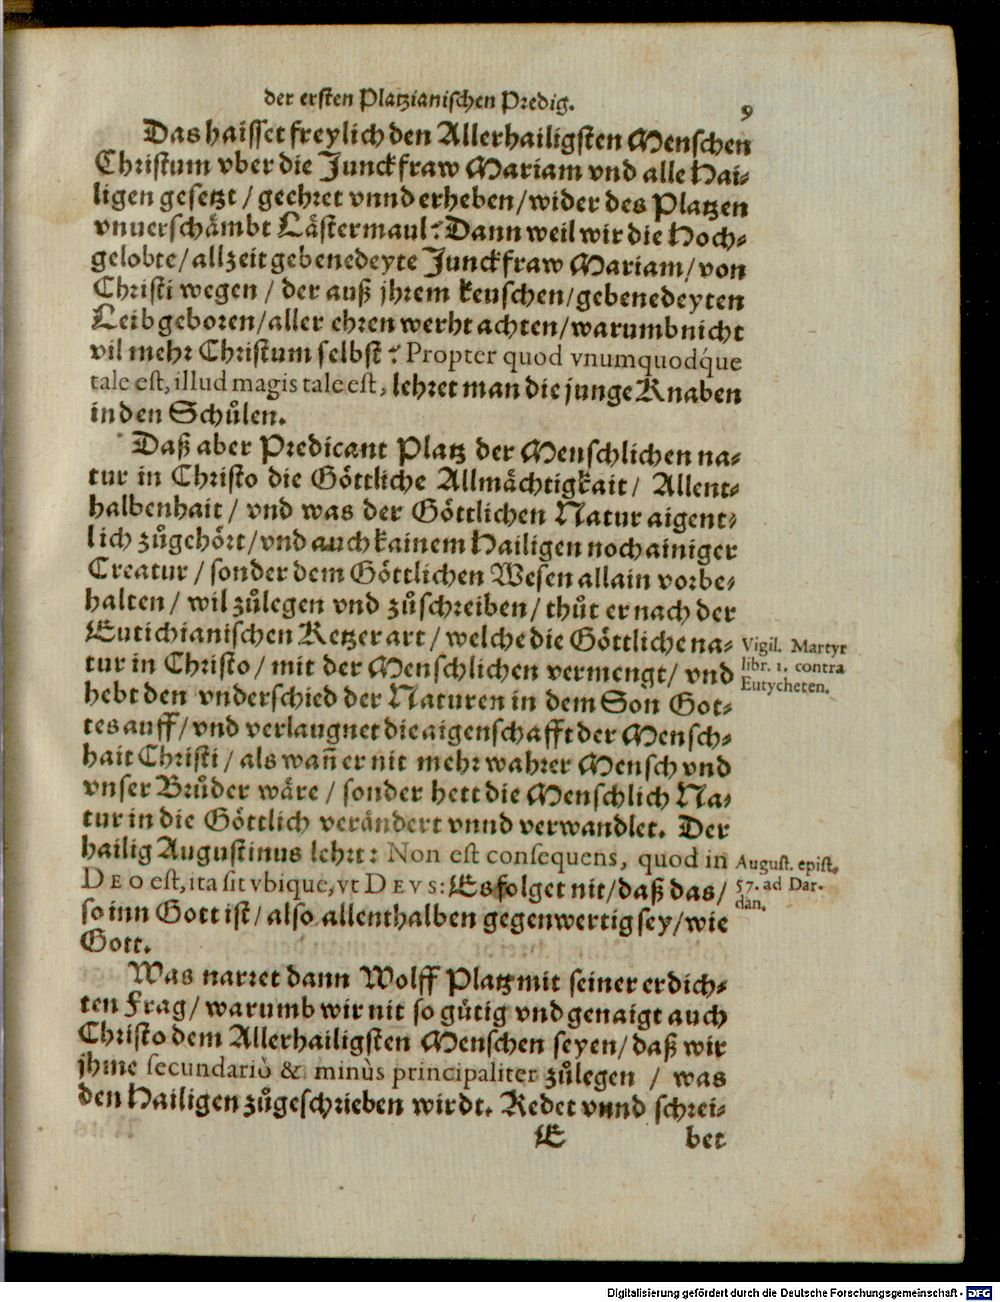 der ersten Platzianischen Predig. 9
Das haisset freylich den Allerhailigsten Menschen
Christum vber die Junckfraw Mariam vnd alle Hai-
ligen gesetzt / geehret vnnd erheben / wider des Platzen
vnuerschämbt Lästermaul? Dann weil wir die Hoch-
gelobte / allzeit gebenedeyte Junckfraw Mariam / von
Christi wegen / der auß jhrem keuschen / gebenedeyten
Leib geboren / aller ehren werht achten / warumb nicht
vil mehr Christum selbst? Propter quod vnumquodq́ue
tale est, illud magis tale est, lehret man die junge Knaben
in den Schůlen.
Daß aber Predicant Platz der Menschlichen na-
tur in Christo die Göttliche Allmächtigkait / Allent-
halbenhait / vnd was der Göttlichen Natur aigent-
lich zůgehört / vnd auch kainem Hailigen noch ainiger
Creatur / sonder dem Göttlichen Wesen allain vorbe-
halten / wil zůlegen vnd zůschreiben / thůt er nach der
Eutichianischen Ketzer art / welche die Göttliche na-
tur in Christo / mit der Menschlichen vermengt / vnd
hebt den vnderschied der Naturen in dem Son Got-
tes auff / vnd verlaugnet die aigenschafft der Mensch-
hait Christi / als wañ er nit mehr wahrer Mensch vnd
vnser Brůder wäre / sonder hett die Menschlich Na-
tur in die Göttlich verändert vnnd verwandlet. Der
hailig Augustinus lehrt: Non est consequens, quod in
DEO est, ita sit vbique, vt DEVS: Es folget nit / daß das /
so inn Gott ist / also allenthalben gegenwertig sey / wie
Gott.
Was narret dann Wolff Platz mit seiner erdich-
ten Frag / warumb wir nit so gütig vnd genaigt auch
Christo dem Allerhailigsten Menschen seyen / daß wir
jhme secundariò & minùs principaliter zůlegen / was
den Hailigen zůgeschrieben wirdt. Redet vnnd schrei-
E bet
Vigil. Martyr
libr. 1. contra
Eutycheten.
August. epist.
57. ad Dar-
dan.
Digitalisierung gefördert durch die Deutsche Forschungsgemeinschaft - DFG